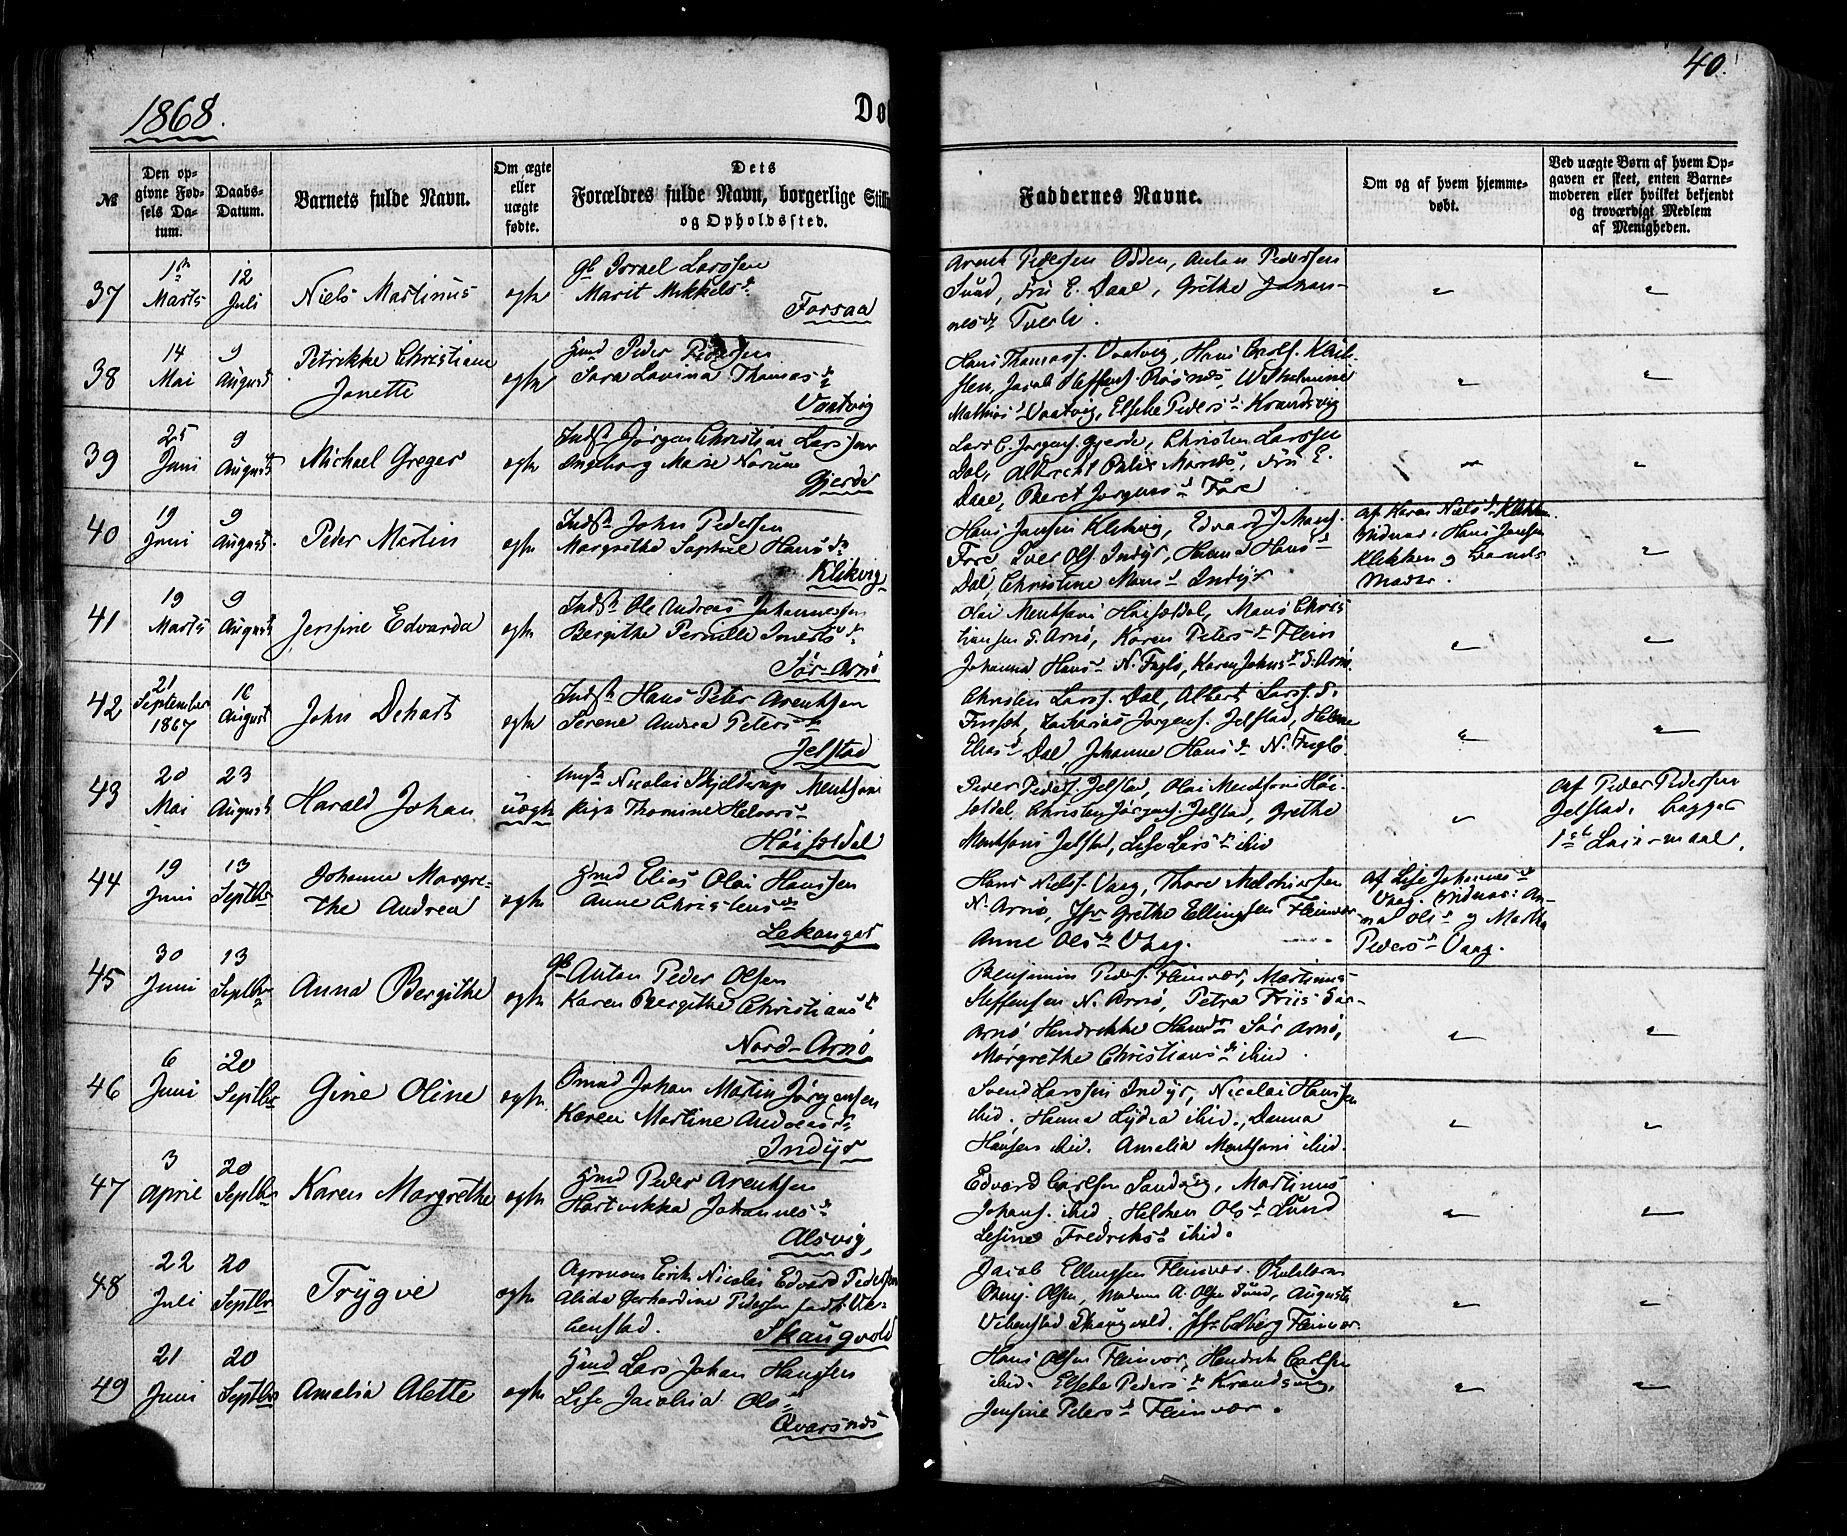 40.
1868.
Dø
№
Den opgivne Fødsels Datum.
Daabs-Datum.
Barnets fulde Navn.
Om ægte eller uægte fødte.
Dets
Forældres fulde Navn, borgerlige Still
og Opholdssted.
Faddernes Navne.
Om og af hvem hjemmedøbt.
Ved uægte Børn af hvem Opgaven er skeet, enten Barnemoderen eller hvilket bekjendt og troværdigt Medlem af Menigheden.
37
Marts
12
Juli
Niels Martinus
ægte
Israel Larssen
Marit Mikkelsd.
Forsaa
Arnt Pedersen Odden, Anton Pederssen
Sund, Fru E. Daae, Grethe Johan-
nesd.
38
14
Mai
9
August
Petrikke Christiane
Janette
ægte
Gmd Peder Pedersen
Sara Lavina Thomasd.
Vaatvig
Hans Thomass. Vaatvig, Hans
Jacob Steffens. Røsnes, Wilhelmine
Mathiasd. Vaatvig, Elsebe Pedersd. Krandsvig
39
25
Juni
9
August
Michael Greger
ægte
Indst. Jørgen Christian Larssen
Ingeborg Marie
Gjerde
Lars C. Jørgens. Gjerde, Christen Larssen
Dal, Albrecht Fru E.
Daae, Beret Jørgensd. Fore
40
19
Juni
9
August.
Peder Martin
ægte
Indst. John Pedersen
Margrethe Sophie Hansd.
Klikvig
Hans Jensen Klikvig, Edvard J.
Fore, Iver Ols. Indyr, Hansd.
Dal, Christine Indyr
Af Karen Nielsd. Klikken
Vidner: Hans Jensen
Klikken og Barnets
Moder.
41
19
Marts
9
August
Jensine Edvarda
ægte
Indst. Ole Andreas Johannessen
Bergithe Pernelle
Sør-Arnø
Olai Mentsoni Høiseldal, Chris
tiansen S. Arnø, Karen Petersd. Flein
Johanna Hansd. N. Fuglø, Karen Johnsd. S. Arnø
42
21
September
1867
16
August
John Dehart
ægte
Indst. Hans Peter Arentsen
Serene Andrea Petersd.
Jelstad
Christen Larss. Dal, Albert Larss. S.
Zackarias Jørgens. Jelstad, Helene
Eliasd. Dal, Johanna Hansd. N. Fuglø
43
20
Mai
23
August
Harald Johan
uægte
Ungk. Nicolai Skjelderup Mentsoni
Pige Thomine
Høiseldal
Peder Peders. Jelstad, Olai Mentsoni Høi-
seldal, Christen Jørgens. Jelstad, Grethe
Mentsoni Jelstad, Lise Larsd. ibid
Af Peder Pedersen
Jelstad. Begges
1ste Leiermaal.
44
19
Juni
13
Septbr
Johanna Margre-
the Andrea
ægte
Gmd Elias Olai Hanssen
Anne Christensd.
Lekanger
Hans Niels. Vaag, Thore Melchiorsen
N. Arnø, Jfr. Grethe Ellingsen Fleinvær
Anne Olsd. Vaag.
Af Lise Johannesd.
Vaag. Vidner: An-
na Olsd. og Martha
Pedersd. Vaag.
45
30
Juni
13
Septbr
Anna Bergithe
ægte
Anton Peder Olsen
Karen Bergithe Christiansd.
Nord-Arnø
Benjamin Peders. Fleinvær, Martinus
Steffensen N. Arnø, Petra Friis Sør-
Arnø Hendrikke Hansd. Sør Arnø,
Margrethe Christiansd. ibid.
46
6
Juni
20
Septbr
Gine Oline
ægte
Johan Martin Jørgensen
Karen Martine Andreasd.
Indyr
Svend Larssen Indyr, Nicolai Hanssen
ibid. Hanna Lydia ibid., Danna
Hansen ibid. Amalia Mentsoni ibid.
47
3
April
20
Septbr
Karen Margrethe
ægte
Gmd Peder Arentsen
Hartvikka Johannesd.
Alsvig
Edvard Carlsen Sandvig, Martinus
Johans. ibid, Helene Olsd. Sund
Lesine Fredriksd. ibid.
48
22
Juli
20
Septbr
Trygve
ægte
Agronom Erik Nicolai Edvard Pedersen
Alida Gerhardine Pedersen født Ve-
benstad.
Skaugvold
Jacob Ellingsen Fleinvær.
Benj. Olsen, Madam A. Olsen Sund, Augusta
Vebenstad Skaugvold. Jfr Fleinvær.
49
21
Juni
20
Septbr
Amalia Alette
ægte
Gmd Lars Johan Hanssen
Lise Jacobia Olsd.
Qvarsnæs
Hans Olsen Fleinvær, Hendrik Carlsen
ibid. Elsebe Pedersd. Krandsvig,
Jensine Petersd. Fleinvær.